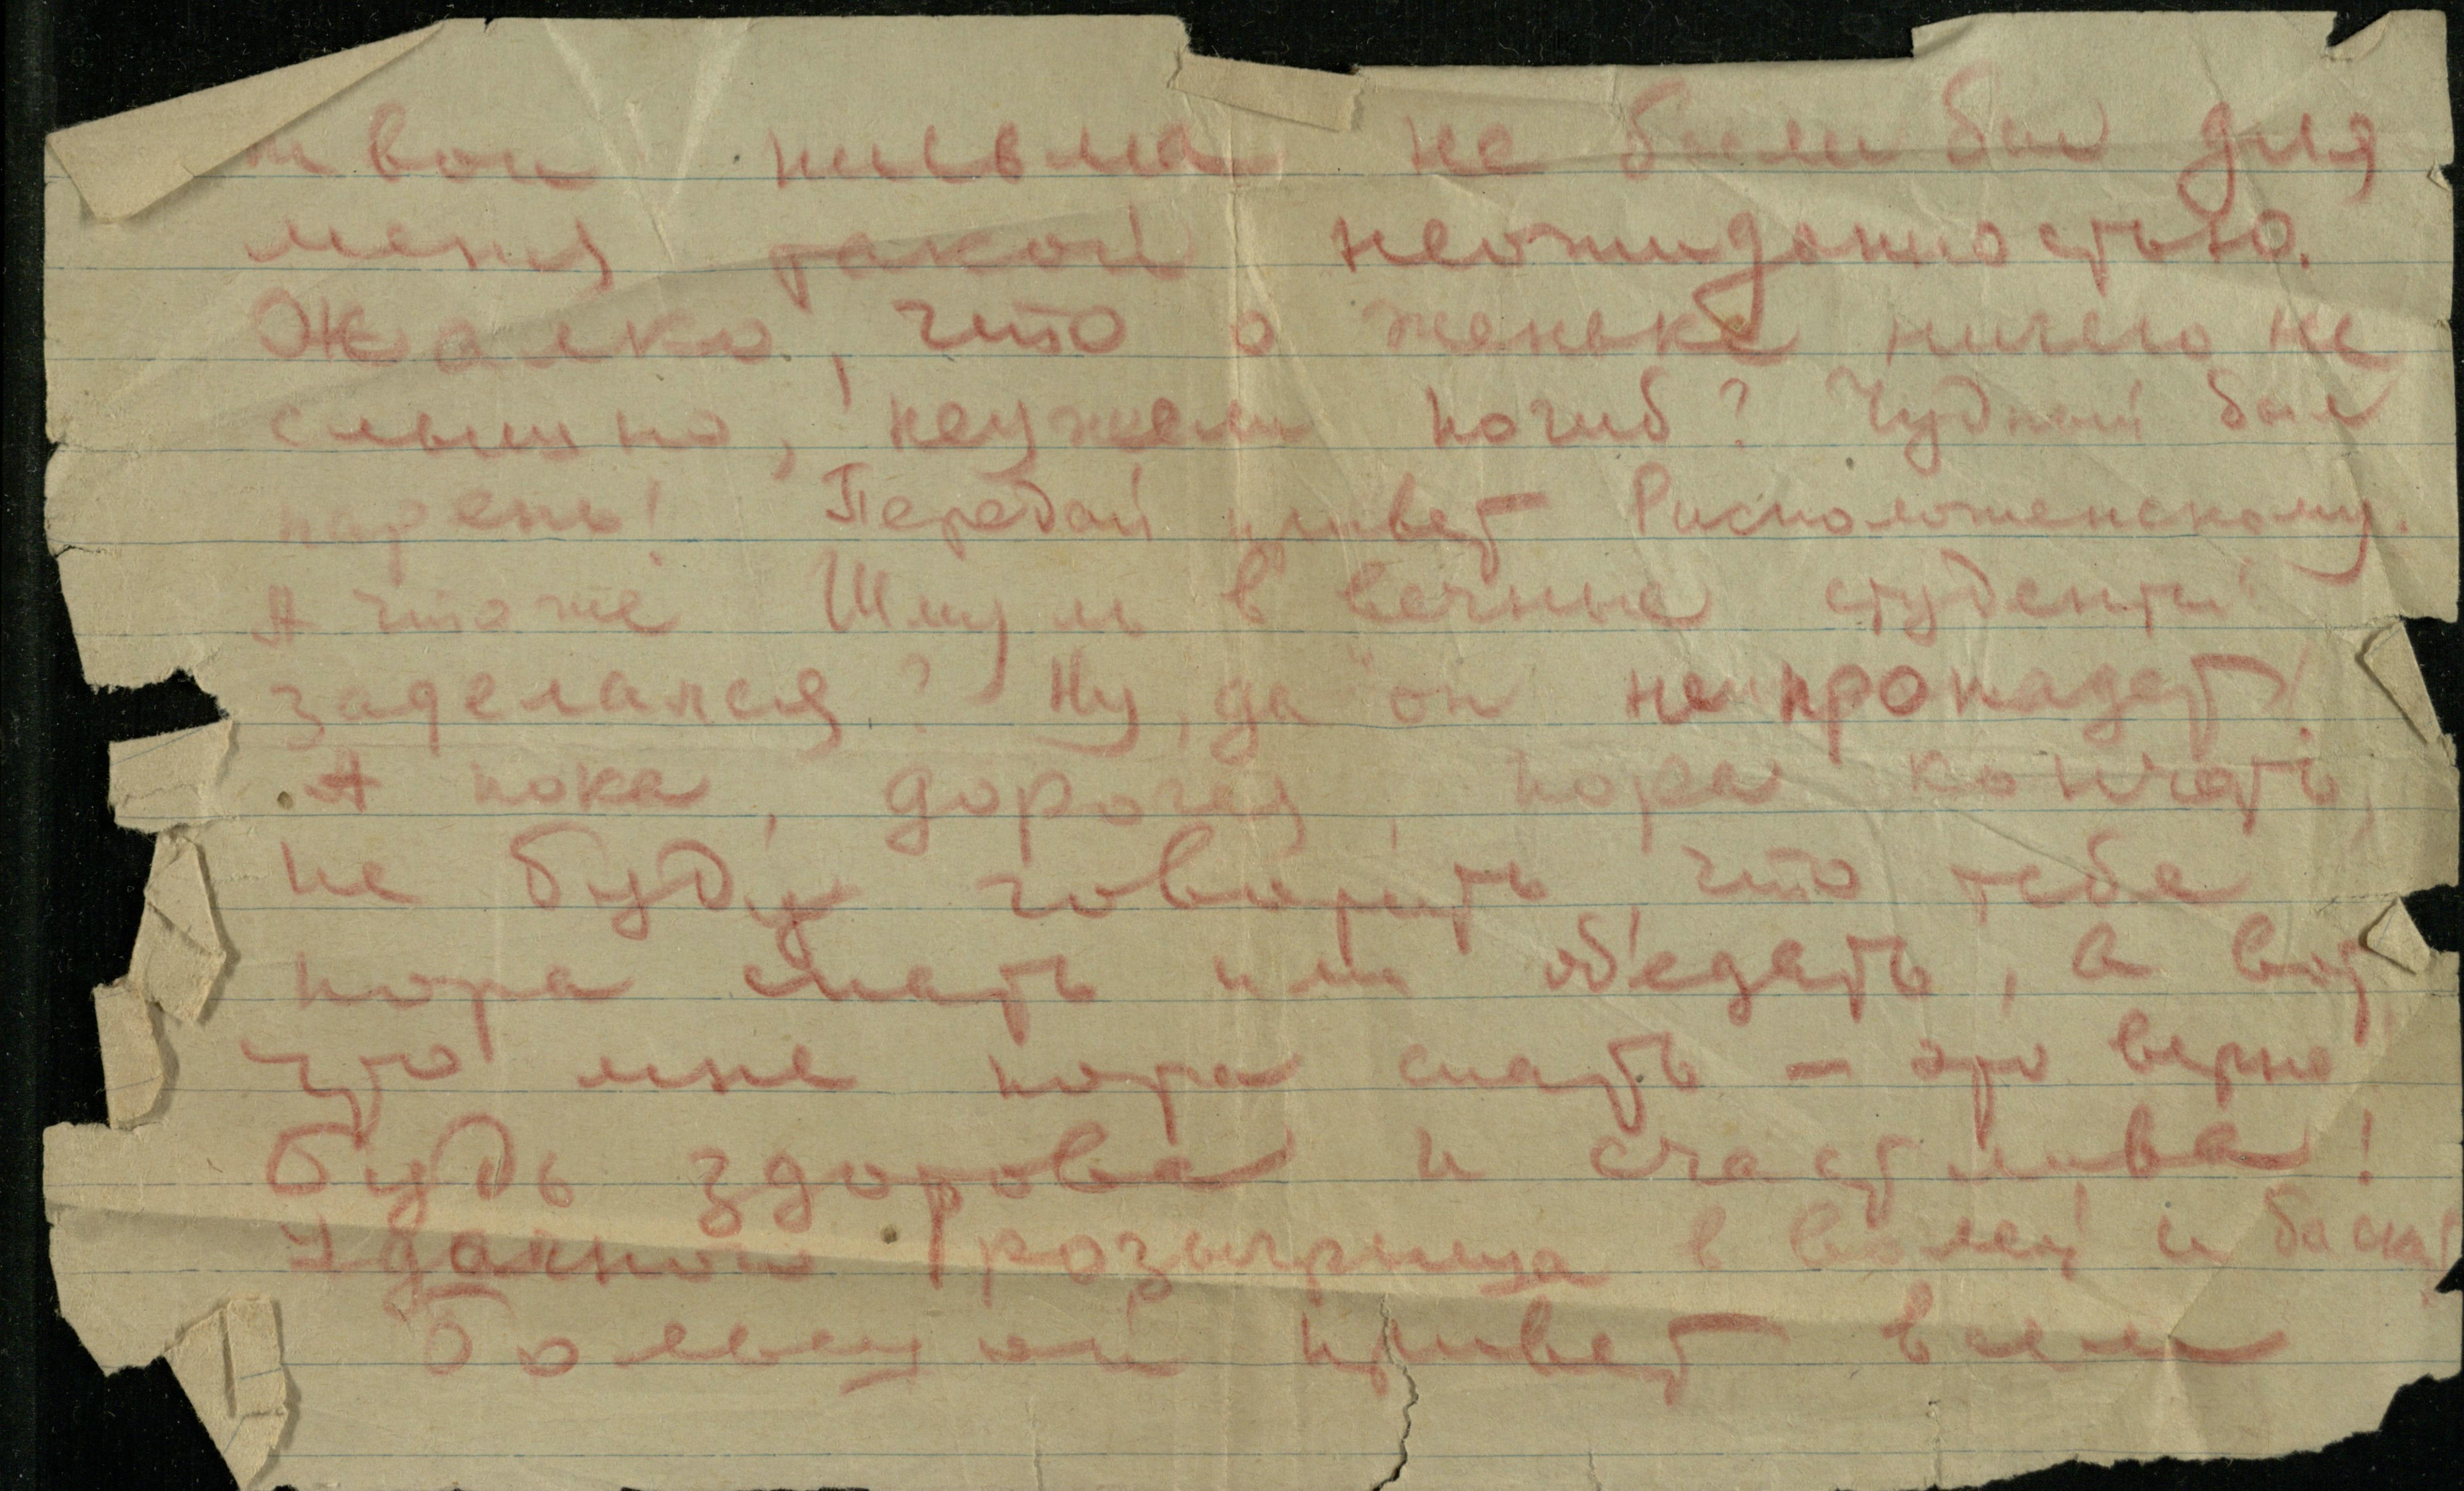 твои письма не были бы для
меня такой неожиданностью.
Жалко, что о женьке ничего не
слышно, неужели погиб? Чудный был
парень! Передай привет Рисположенскому.
А что же Шмуль в вечные студенты
заделался? Ну, да он не пропадет!
А пока, дорогая, пора кончать,
не буду говорить, что тебе
пора спать или об'едать, а вот
что мне пора спать — это верно
Будь здорова и счастлива!
Удачного розыгрыша в волей и баскет
Большой привет всем